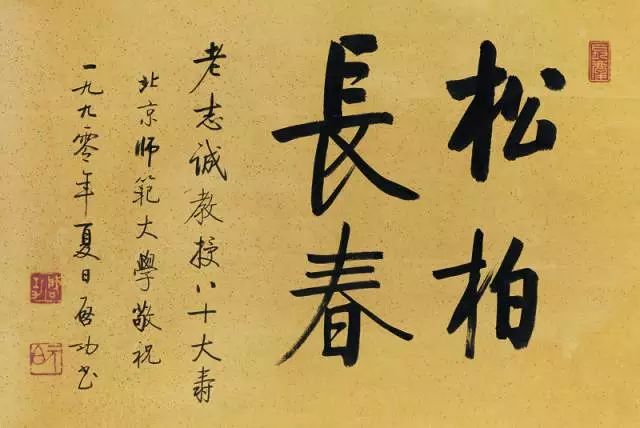 松柏
長春
老志诚教授八十大寿
北京师範大學敬祝
一九九零年夏日啟功书